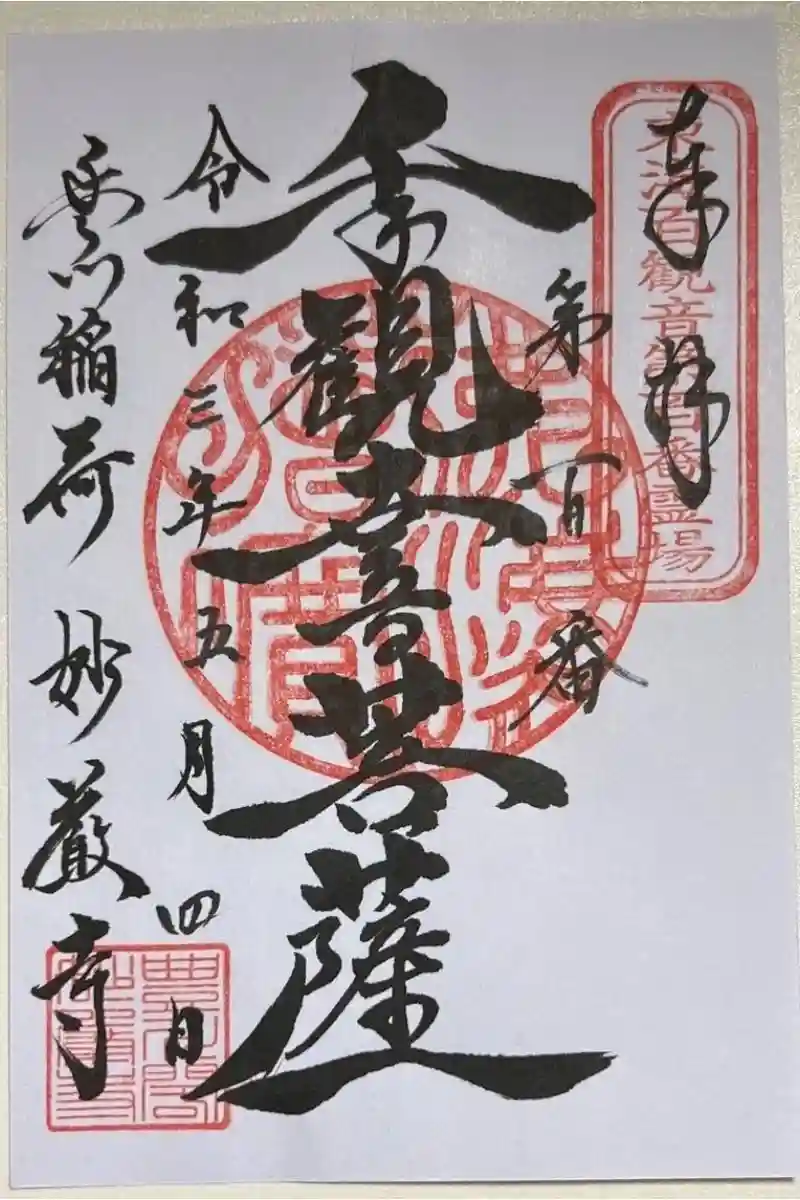 奉拝
東海百觀音第百番霊場
第百番
千手觀音菩薩
令和三年五月四日
豊川稲荷 妙厳寺